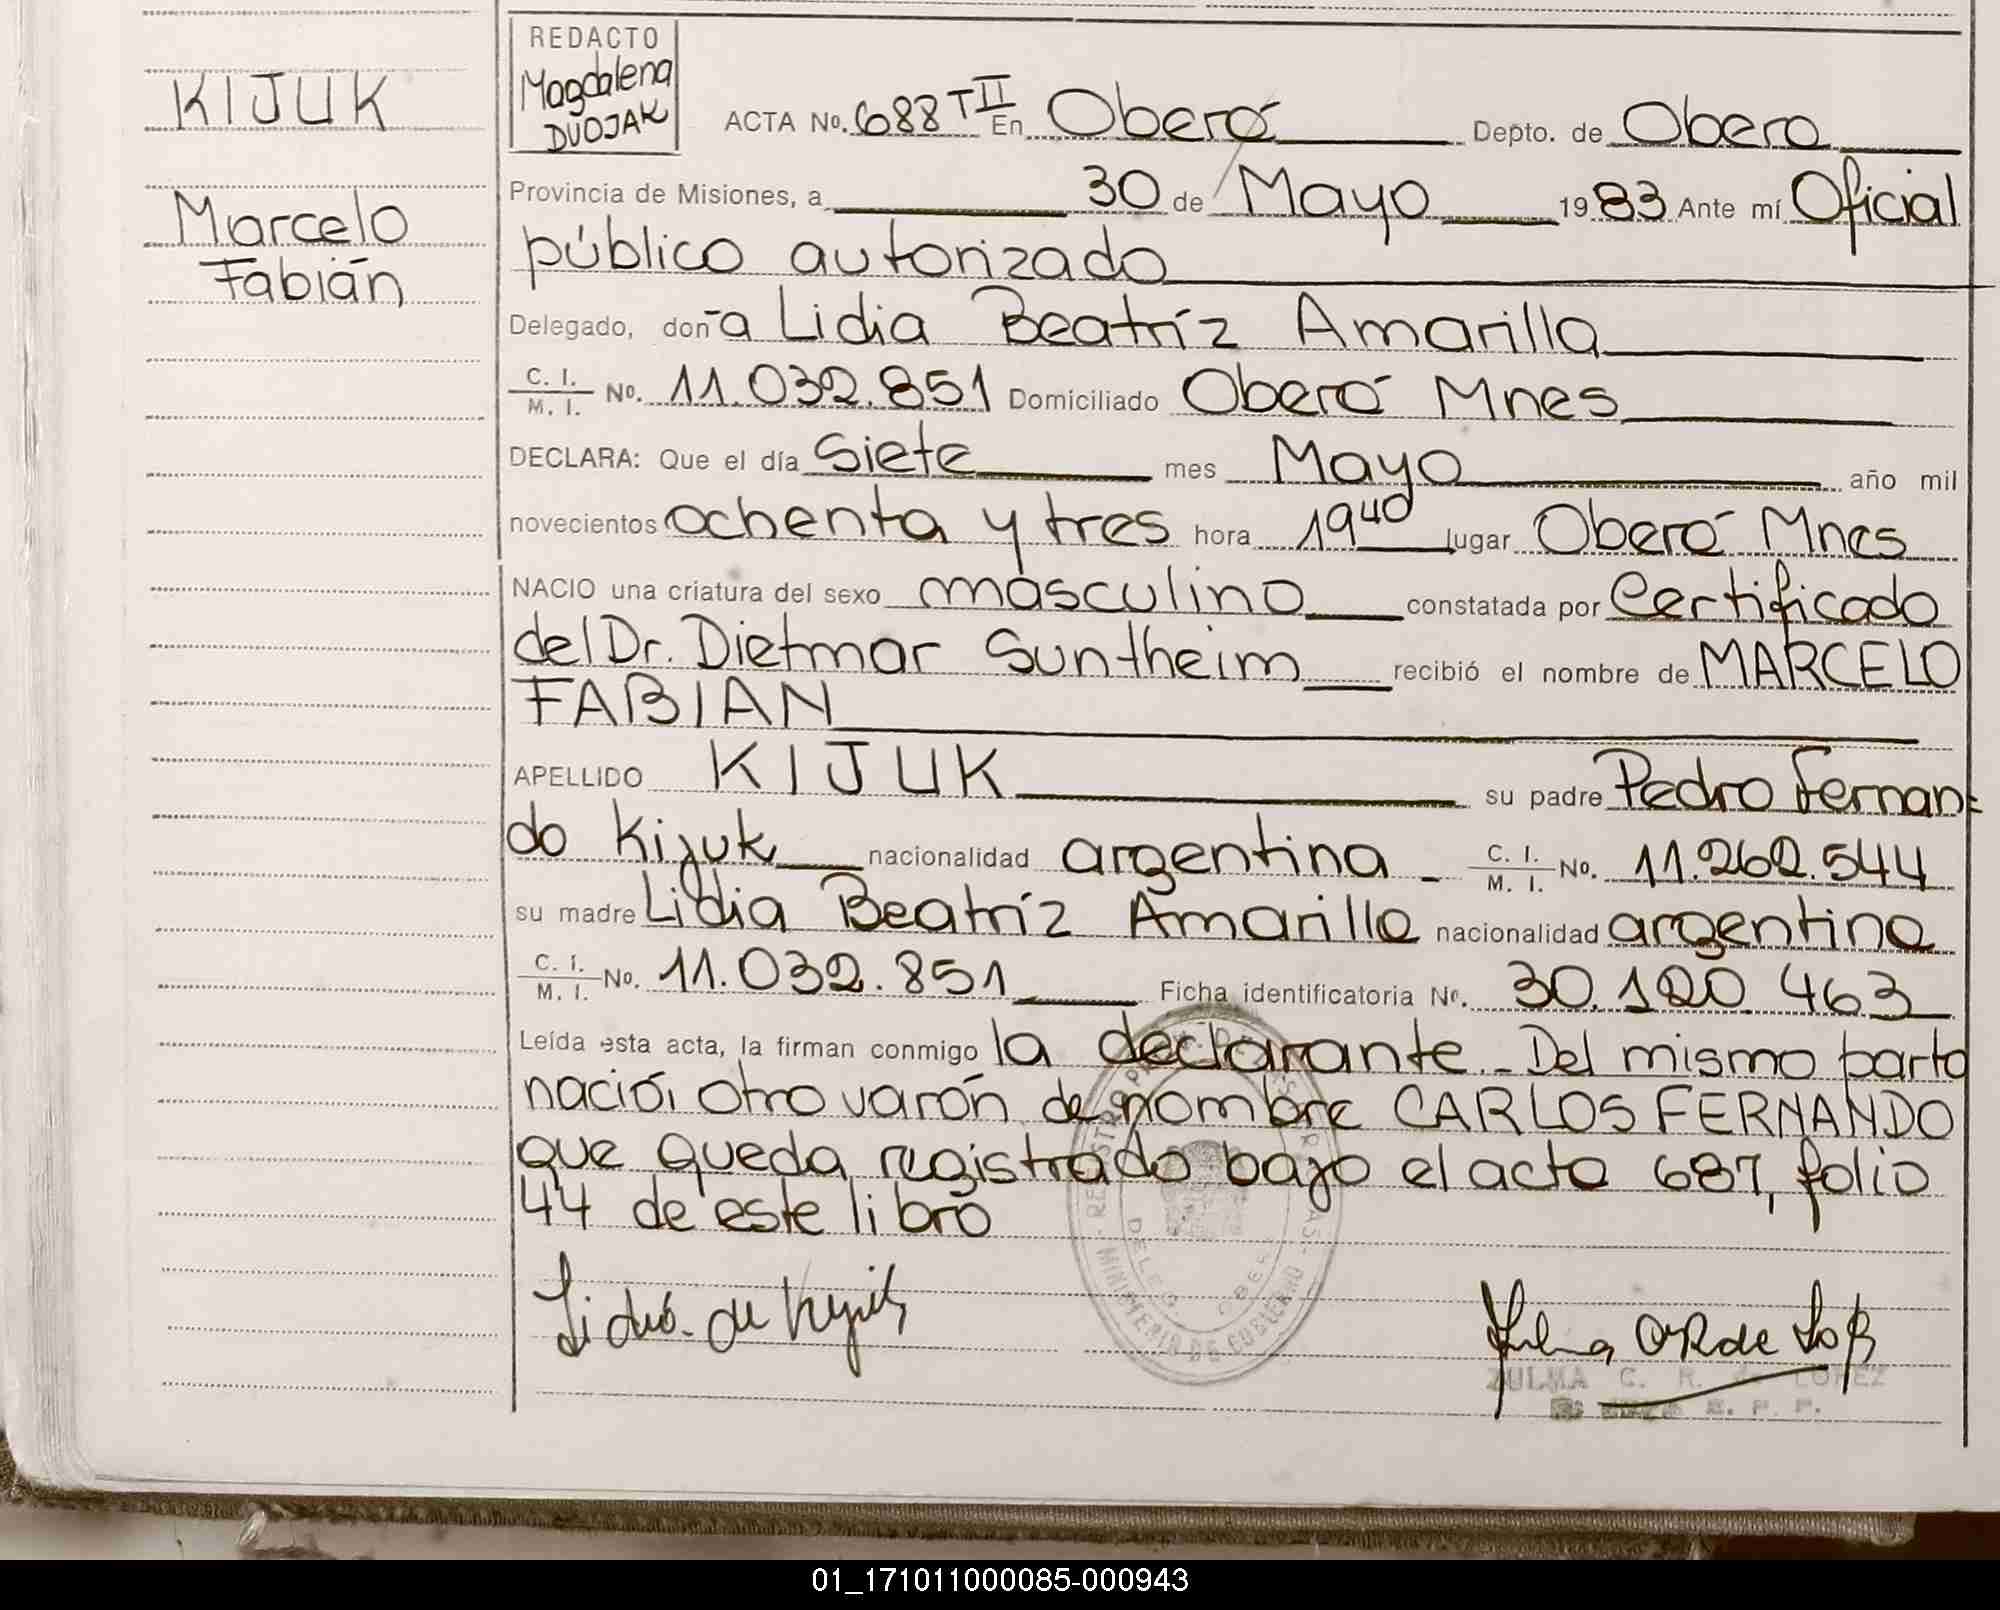 KIJUK
Marcelo
Fabián
REDACTO
Magdalena
DUOJAK
ACTA No. 688 TII En Oberá Depto. de Obera
Provincia de Misiones, a 30 de Mayo 1983 Ante mí Oficial
público autorizado
Delegado, don-a Lidia Beatríz Amarilla
C. I. / M. I. No. 11.032.851 Domiciliado Oberá Mnes
DECLARA: Que el día siete mes Mayo año mil
novecientos ochenta y tres hora 19 40 lugar Oberá Mnes
NACIO una criatura del sexo masculino constatada por Certificado
del Dr. Dietmar Suntheim recibió el nombre de MARCELO
FABIAN
APELLIDO KIJUK su padre Pedro Fernan-
do Kijuk nacionalidad argentina - C. I. / M. I. No. 11.262.544
su madre Lidia Beatríz Amarilla nacionalidad argentina
C. I. / M. I. No. 11.032.851 Ficha identificatoria No. 30.120.463
Leída esta acta, la firman conmigo la declarante.- Del mismo parto
nació, otro varón de nombre CARLOS FERNANDO
que queda registrado bajo el acta 687, folio
44 de este libro
MINISTERIO DE GOBIERNO
DELEG. OBERA
ZULMA C. R. de LOPEZ
01_171011000085-000943